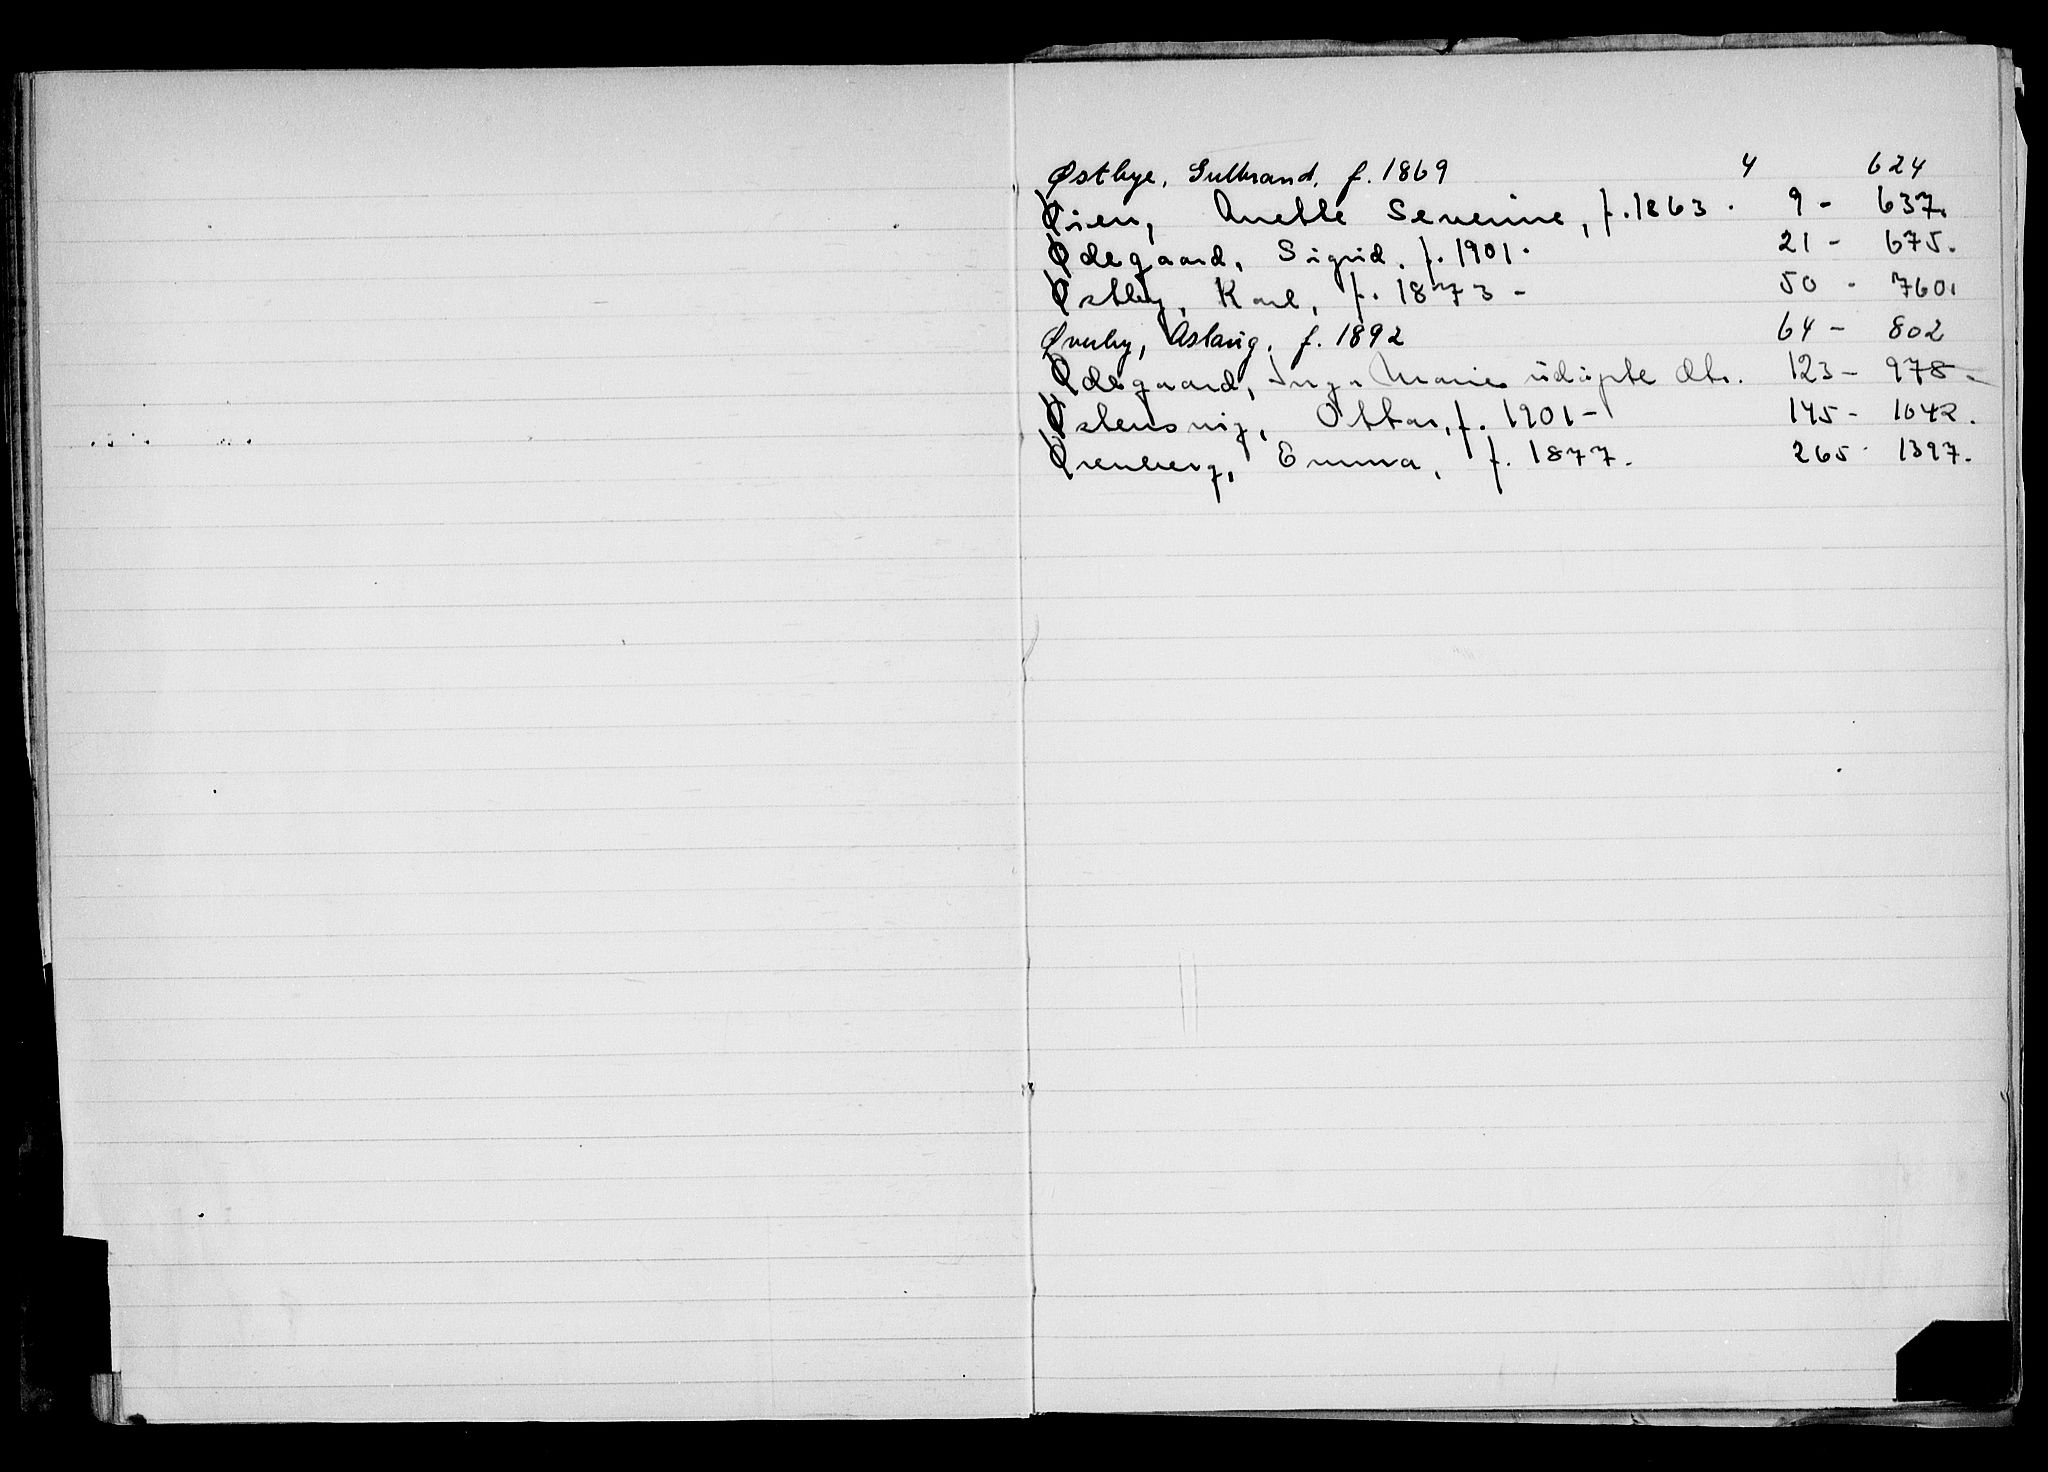 Østbye, Gulbrand, f. 1869 4 624
Øien, Anette Severine, f. 1863. 9 - 637.
Ødegaard, Sigrid. f. 1901. 21 - 675.
Østby, Karl, f. 1873 - 50 - 760.
Øverby, Aslaug. f. 1892 64 - 802
Ødegaard, Inga Maries udöpte dtr. 123 - 978 -
Østensvig, Ottar, f. 1901 - 145 - 1042.
Ørenberg, Emma, f. 1877. 265 - 1397.